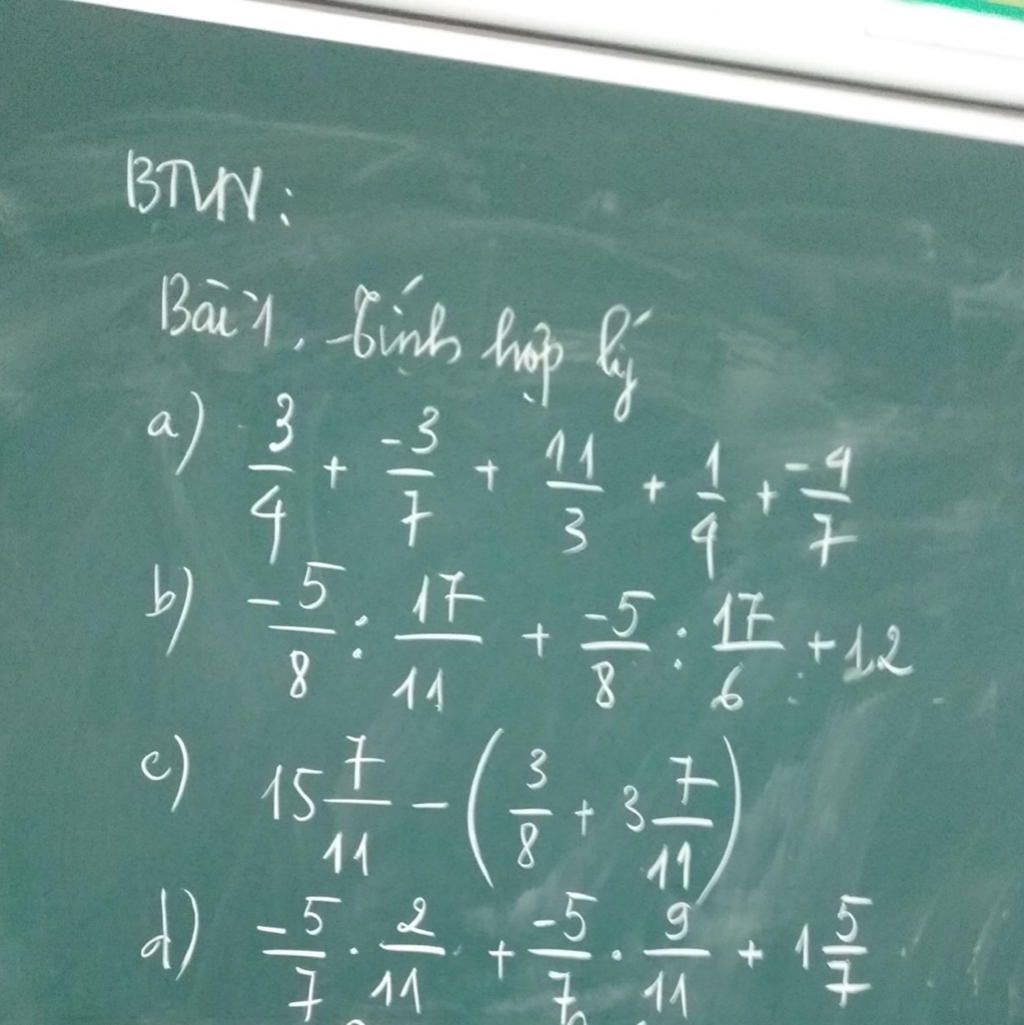 BTVN:
Bài 1. Tính hợp lý
a) 3/4 + -3/7 + 11/3 + 1/4 + -4/7
b) -5/8 : 17/11 + -5/8 : 17/6 + 12
c) 15 7/11 - (3/8 + 3 7/11)
d) -5/7 . 2/11 + -5/7 . 9/11 + 1 5/7